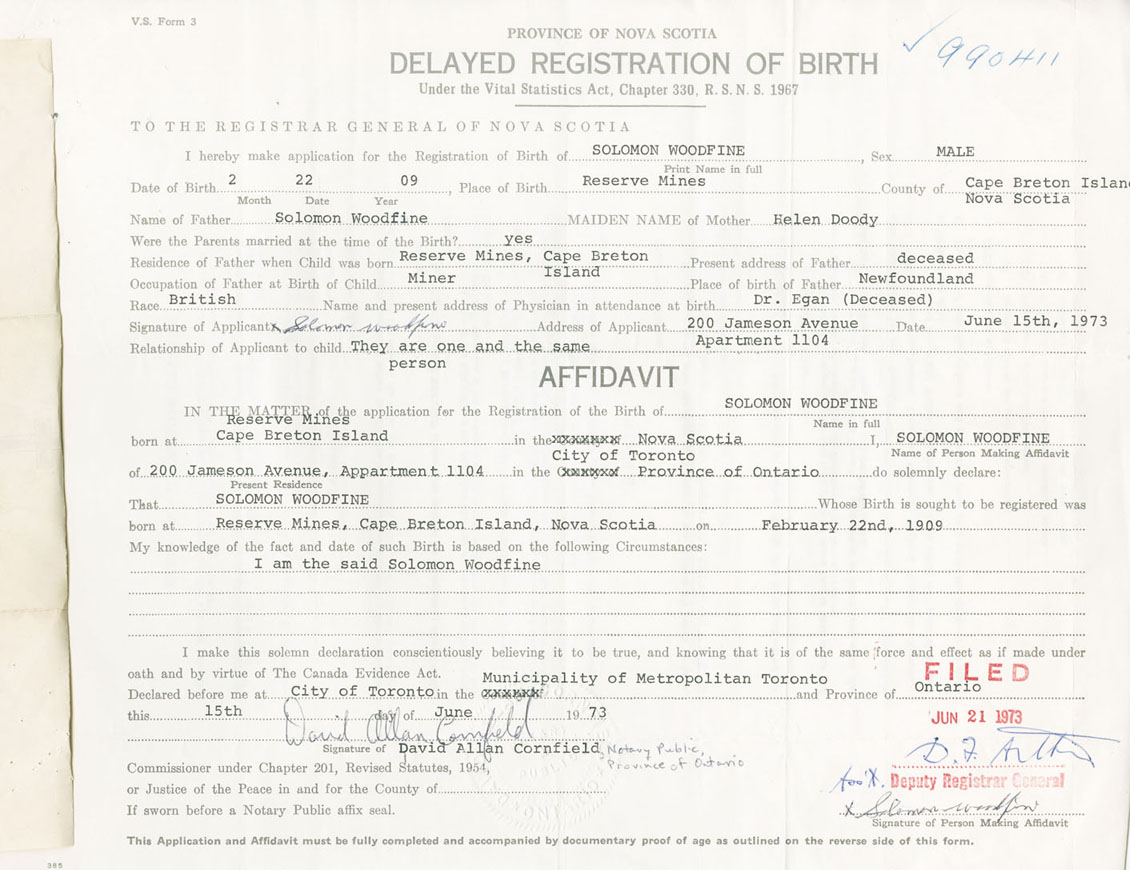 V.S. Form 3
PROVINCE OF NOVA SCOTIA
990411
DELAYED REGISTRATION OF BIRTH
Under the Vital Statistics Act, Chapter 330, R.S.N.S. 1967
TO THE REGISTRAR GENERAL OF NOVA SCOTIA
I hereby make application for the Registration of Birth of SOLOMON WOODFINE, Sex MALE
Print Name in full
Date of Birth 2 22 09, Place of Birth Reserve Mines County of Cape Breton Island
Month Date Year Nova Scotia
Name of Father Solomon Woodfine MAIDEN NAME of Mother Helen Doody
Were the Parents married at the time of the Birth? yes
Residence of Father when Child was born Reserve Mines, Cape Breton Island Present address of Father deceased
Occupation of Father at Birth of Child Miner Place of birth of Father Newfoundland
Race British Name and present address of Physician in attendance at birth Dr. Egan (Deceased)
Signature of Applicant x Solomon Woodfine Address of Applicant 200 Jameson Avenue Date June 15th, 1973
Relationship of Applicant to child They are one and the same Apartment 1104
person
AFFIDAVIT
IN THE MATTER of the application for the Registration of the Birth of SOLOMON WOODFINE
Reserve Mines Name in full
born at Cape Breton Island in the xxxxxxx Nova Scotia I, SOLOMON WOODFINE
City of Toronto Name of Person Making Affidavit
of 200 Jameson Avenue, Appartment 1104 in the Cxxxxxx Province of Ontario do solemnly declare:
Present Residence
That SOLOMON WOODFINE Whose Birth is sought to be registered was
born at Reserve Mines, Cape Breton Island, Nova Scotia on February 22nd, 1909
My knowledge of the fact and date of such Birth is based on the following Circumstances:
I am the said Solomon Woodfine
I make this solemn declaration conscientiously believing it to be true, and knowing that it is of the same force and effect as if made under
oath and by virtue of The Canada Evidence Act. Municipality of Metropolitan Toronto FILED
Declared before me at City of Toronto in the xxxxxx and Province of Ontario
this 15th day of June 1973 JUN 21 1973
David Allan Cornfield
Signature of David Allan Cornfield, Notary Public,
Province of Ontario
Commissioner under Chapter 201, Revised Statutes, 1954,
Deputy Registrar General
or Justice of the Peace in and for the County of
x Solomon Woodfine
If sworn before a Notary Public affix seal. Signature of Person Making Affidavit
This Application and Affidavit must be fully completed and accompanied by documentary proof of age as outlined on the reverse side of this form.
385